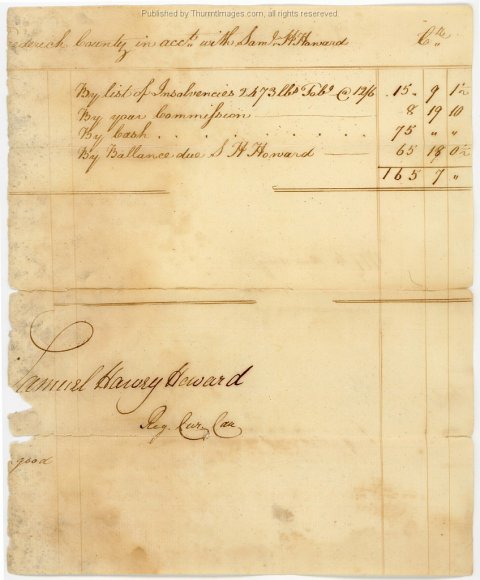 Published by ThurmtImages.com, all rights reserved.
ederick County in acct. with Saml. H. Howard Cr.
By list of Insolvencies 2473 lbs Tobo @ 12/6 15 " 9 1½
By your Commission 8 19 10
By Cash 75 " "
By Ballance due S H Howard 65 18 0½
165 7 "
Samuel Harvey Howard
Reg. Cur. Can
good